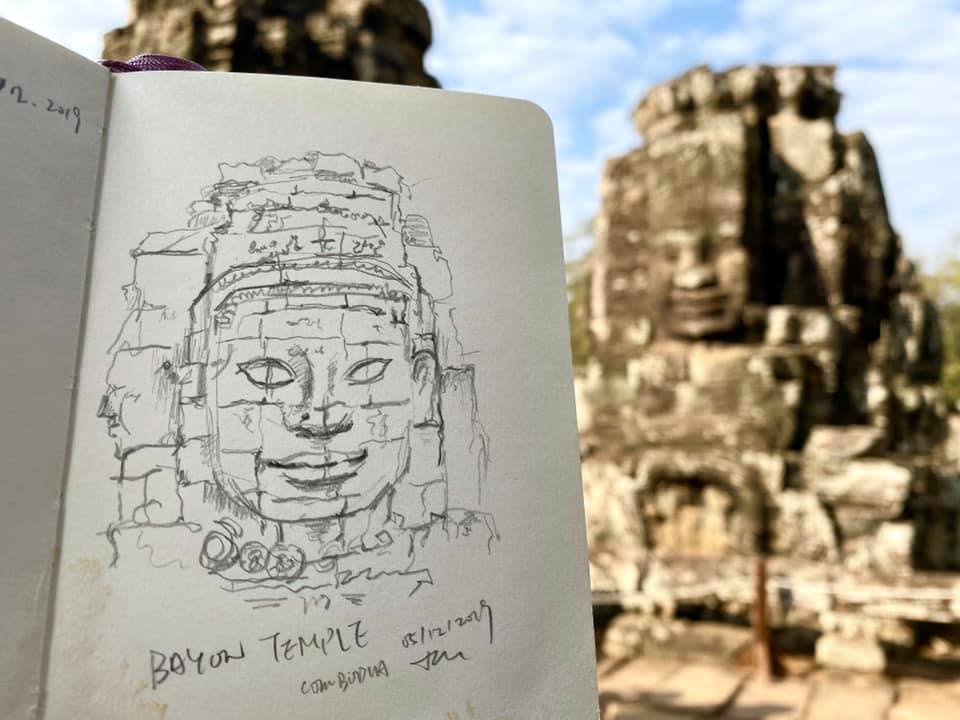 12.2019
BAYON TEMPLE 05/12/2019
COMBODHA